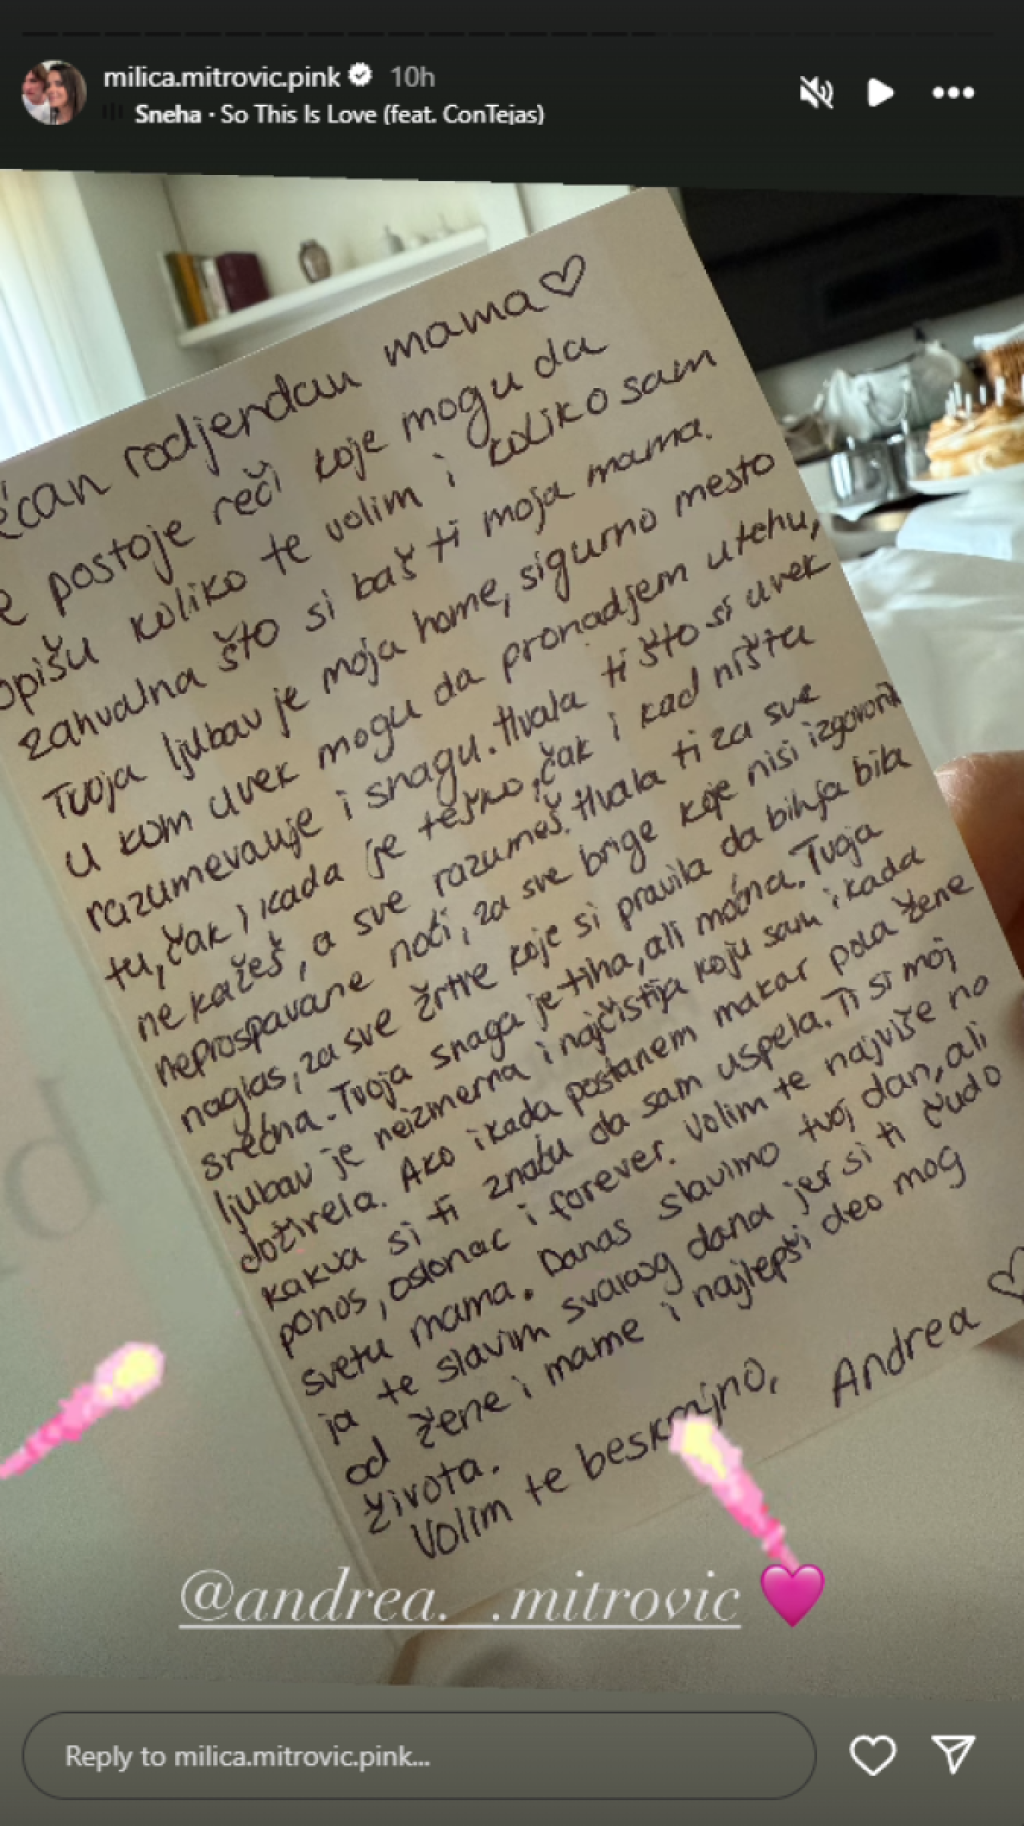 milica.mitrovic.pink 10h
Sneha · So This Is Love (feat. ConTejas)
ećan rodjendan mama♡
e postoje reči koje mogu da
opišu koliko te volim i koliko sam
zahvalna što si baš ti moja mama.
Tvoja ljubav je moja home, sigurno mesto
u kom uvek mogu da pronadjem utehu,
razumevanje i snagu. Hvala ti što si uvek
tu, čak i kada je teško, čak i kad ništa
ne kažeš, a sve razumeš. Hvala ti za sve
neprospavane noći, za sve brige koje nisi izgovorila
naglas, za sve žrtve koje si pravila da bih ja bila
srećna. Tvoja snaga je tiha, ali moćna. Tvoja
ljubav je neizmerna i najčistija koju sam ikada
doživela. Ako ikada postanem makar pola žene
kakva si ti znaću da sam uspela. Ti si moj
ponos, oslonac i forever. Volim te najviše na
svetu mama. Danas slavimo tvoj dan, ali
ja te slavim svakog dana jer si ti čudo
od žene i mame i najlepši deo mog
života.
Volim te beskrajno, Andrea ♡
@andrea._.mitrovic 🩷
Reply to milica.mitrovic.pink...